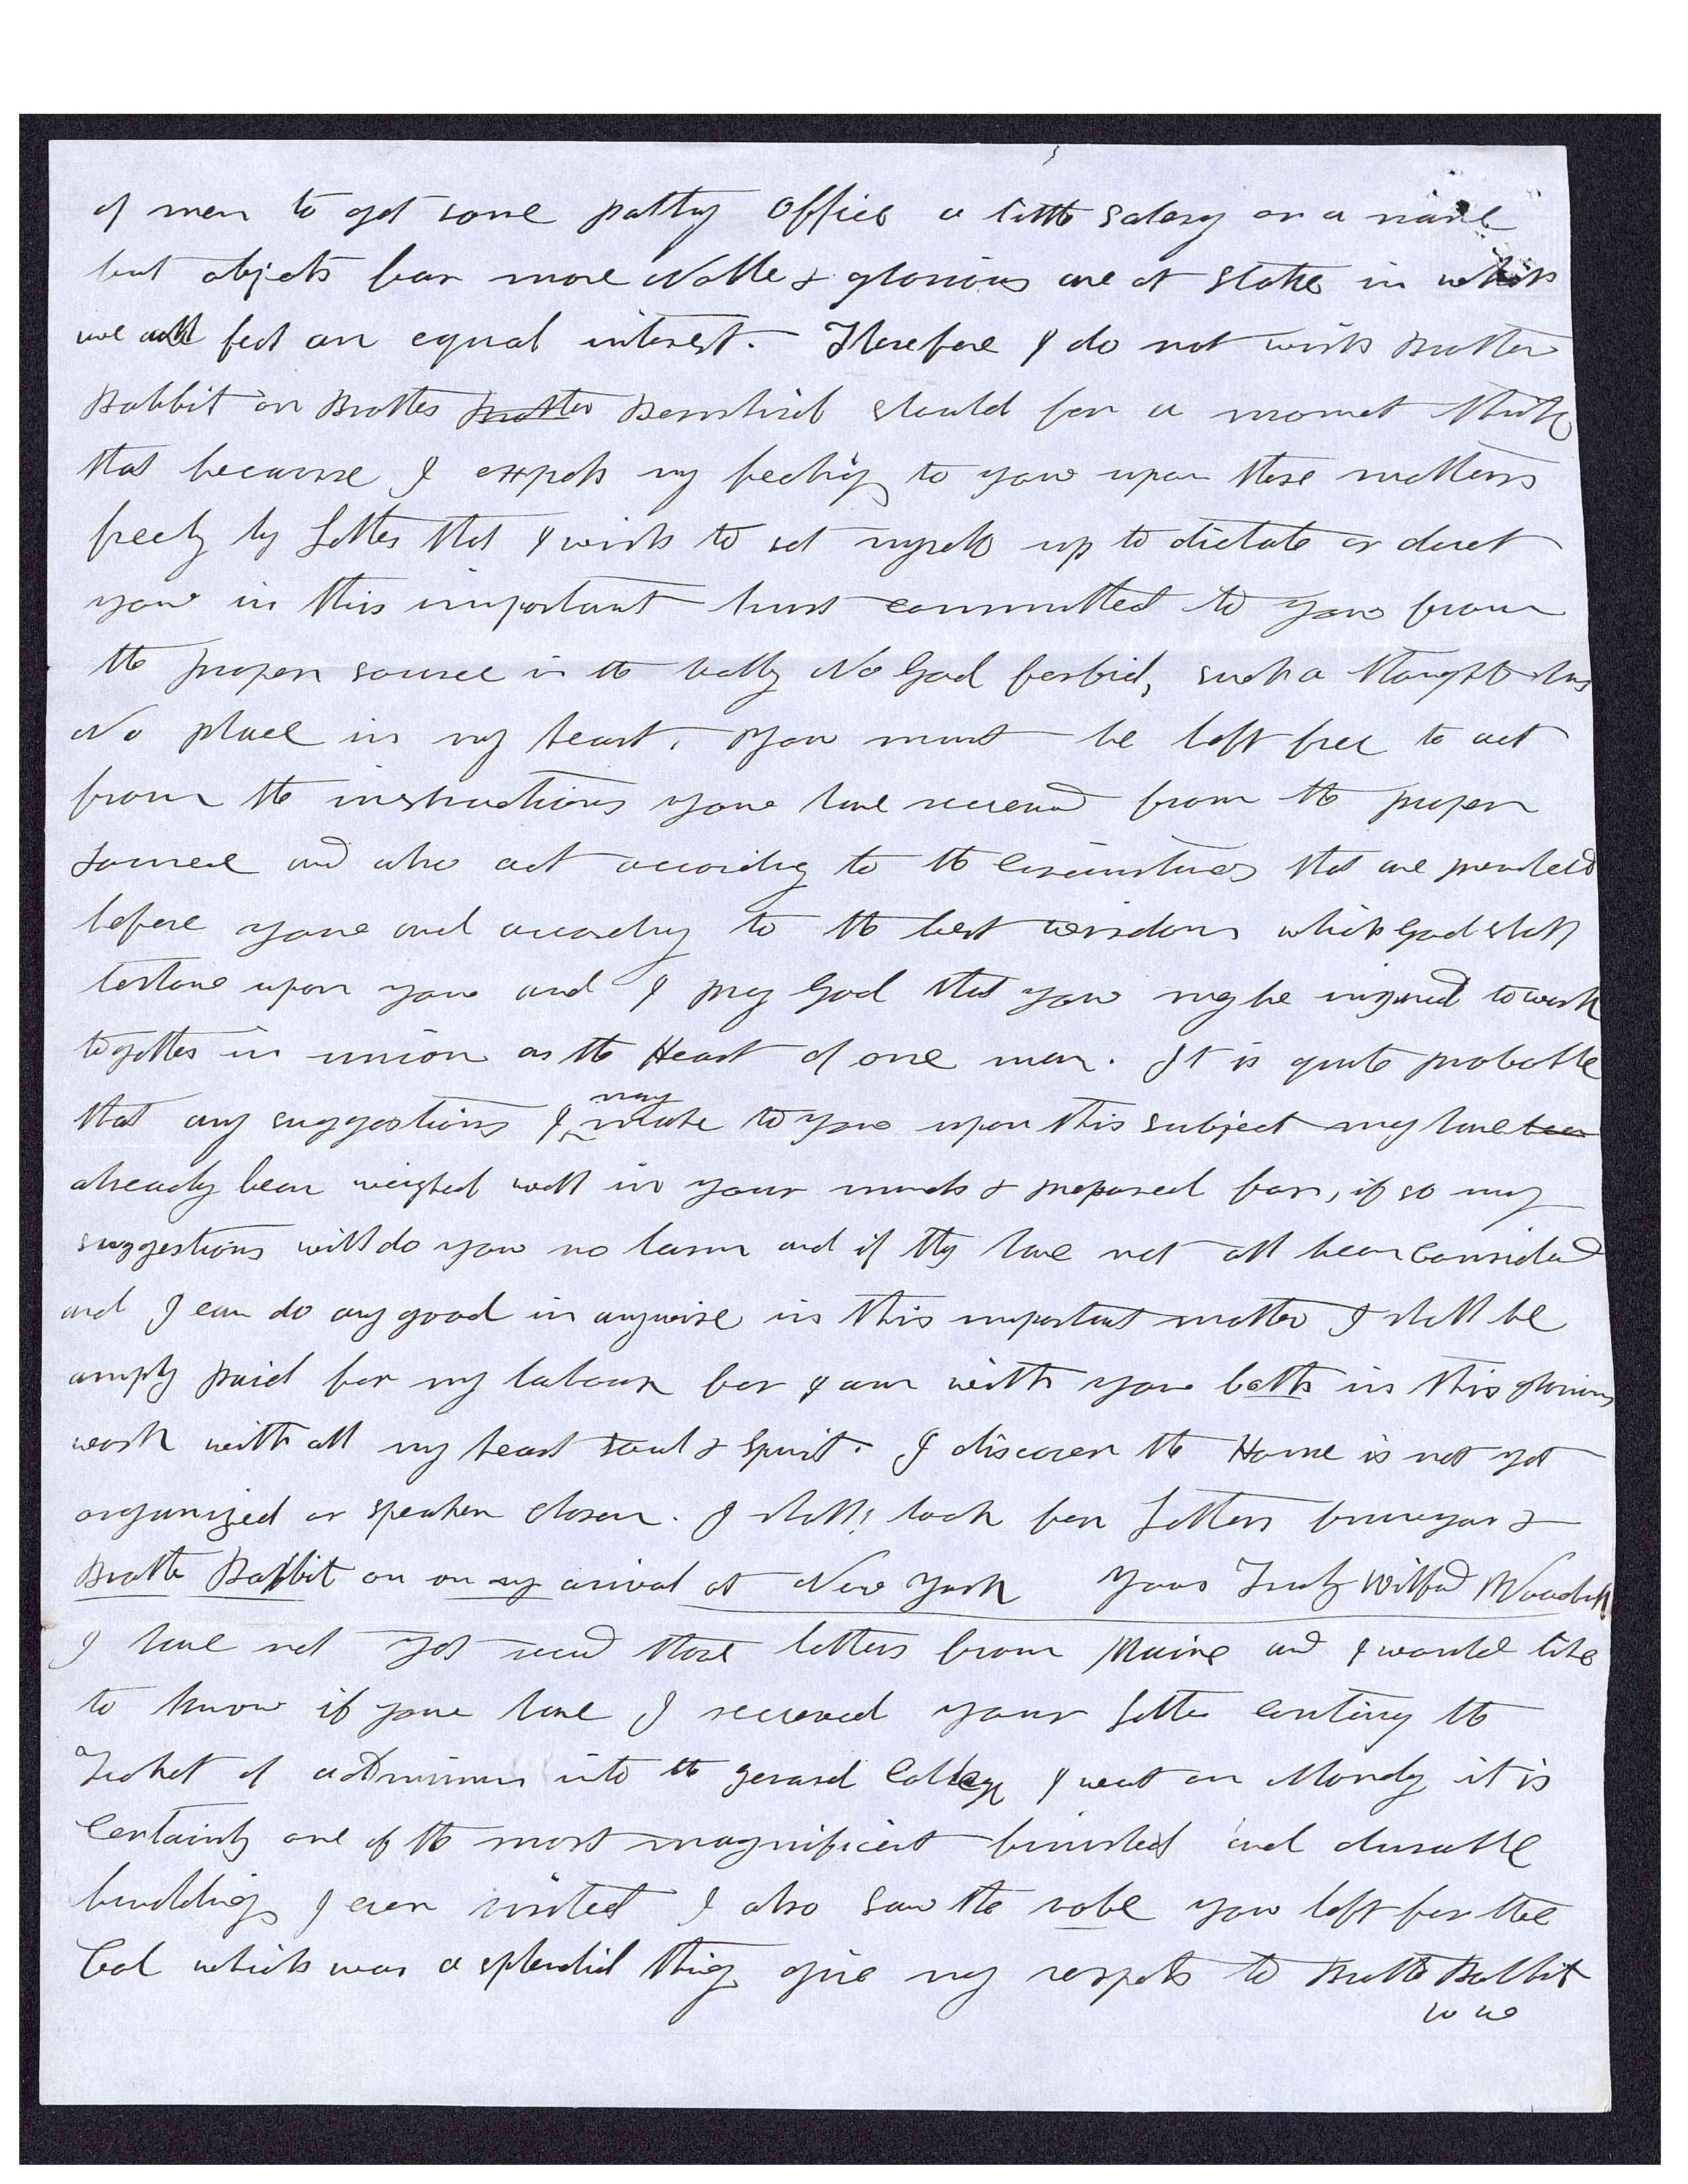 of men to get some paltry office a little salary or a name
but objects far more Noble & glorious are at stake in which
we all feel an equal interest. Therefore I do not wish Brother
Babbit or Brother Brother Bernhisel should for a momet think
that because I express my feelings to you upon these matters
freely by letter that I wish to set myself up to dictate or direct
you in this important trust committed to you from
the proper source in the vally No God forbid, such a thought has
No place in my heart, you must be left free to act
from the instructions you have received from the proper
source and also act according to the circumstances that are presented
before you and according to the best wisdom which God shall
bestow upon you and I pray God that you may be inspired to work
together in union as the Heart of one man. It is quite probable
that any suggestions I may make to you upon this subject may have been
already been weighed well in your minds & prepared for, if so my
suggestions will do you no harm and if they have not all been considerd
and I can do any good in anywise in this important matter I shall be
amply paid for my labour for I am with you both in this glorious
work with all my heart soul & spirit. I discover the House is not yet
organized or speaker chosen. I shall look for letters from you &
Brother Babbit on on my arival at New York Yours Truly Wilford Woodruff
I have not yet recd those letters from Maine and I would like
to know if you have I received your letter containg the
Ticket of admission into the Gerard College I went on Monday it is
Certainly one of the most magnificent finished and durable
buildings I ever visited I also saw the robe you left for the
Col which was a splendid thing give my respects to Brother Babbit
W W